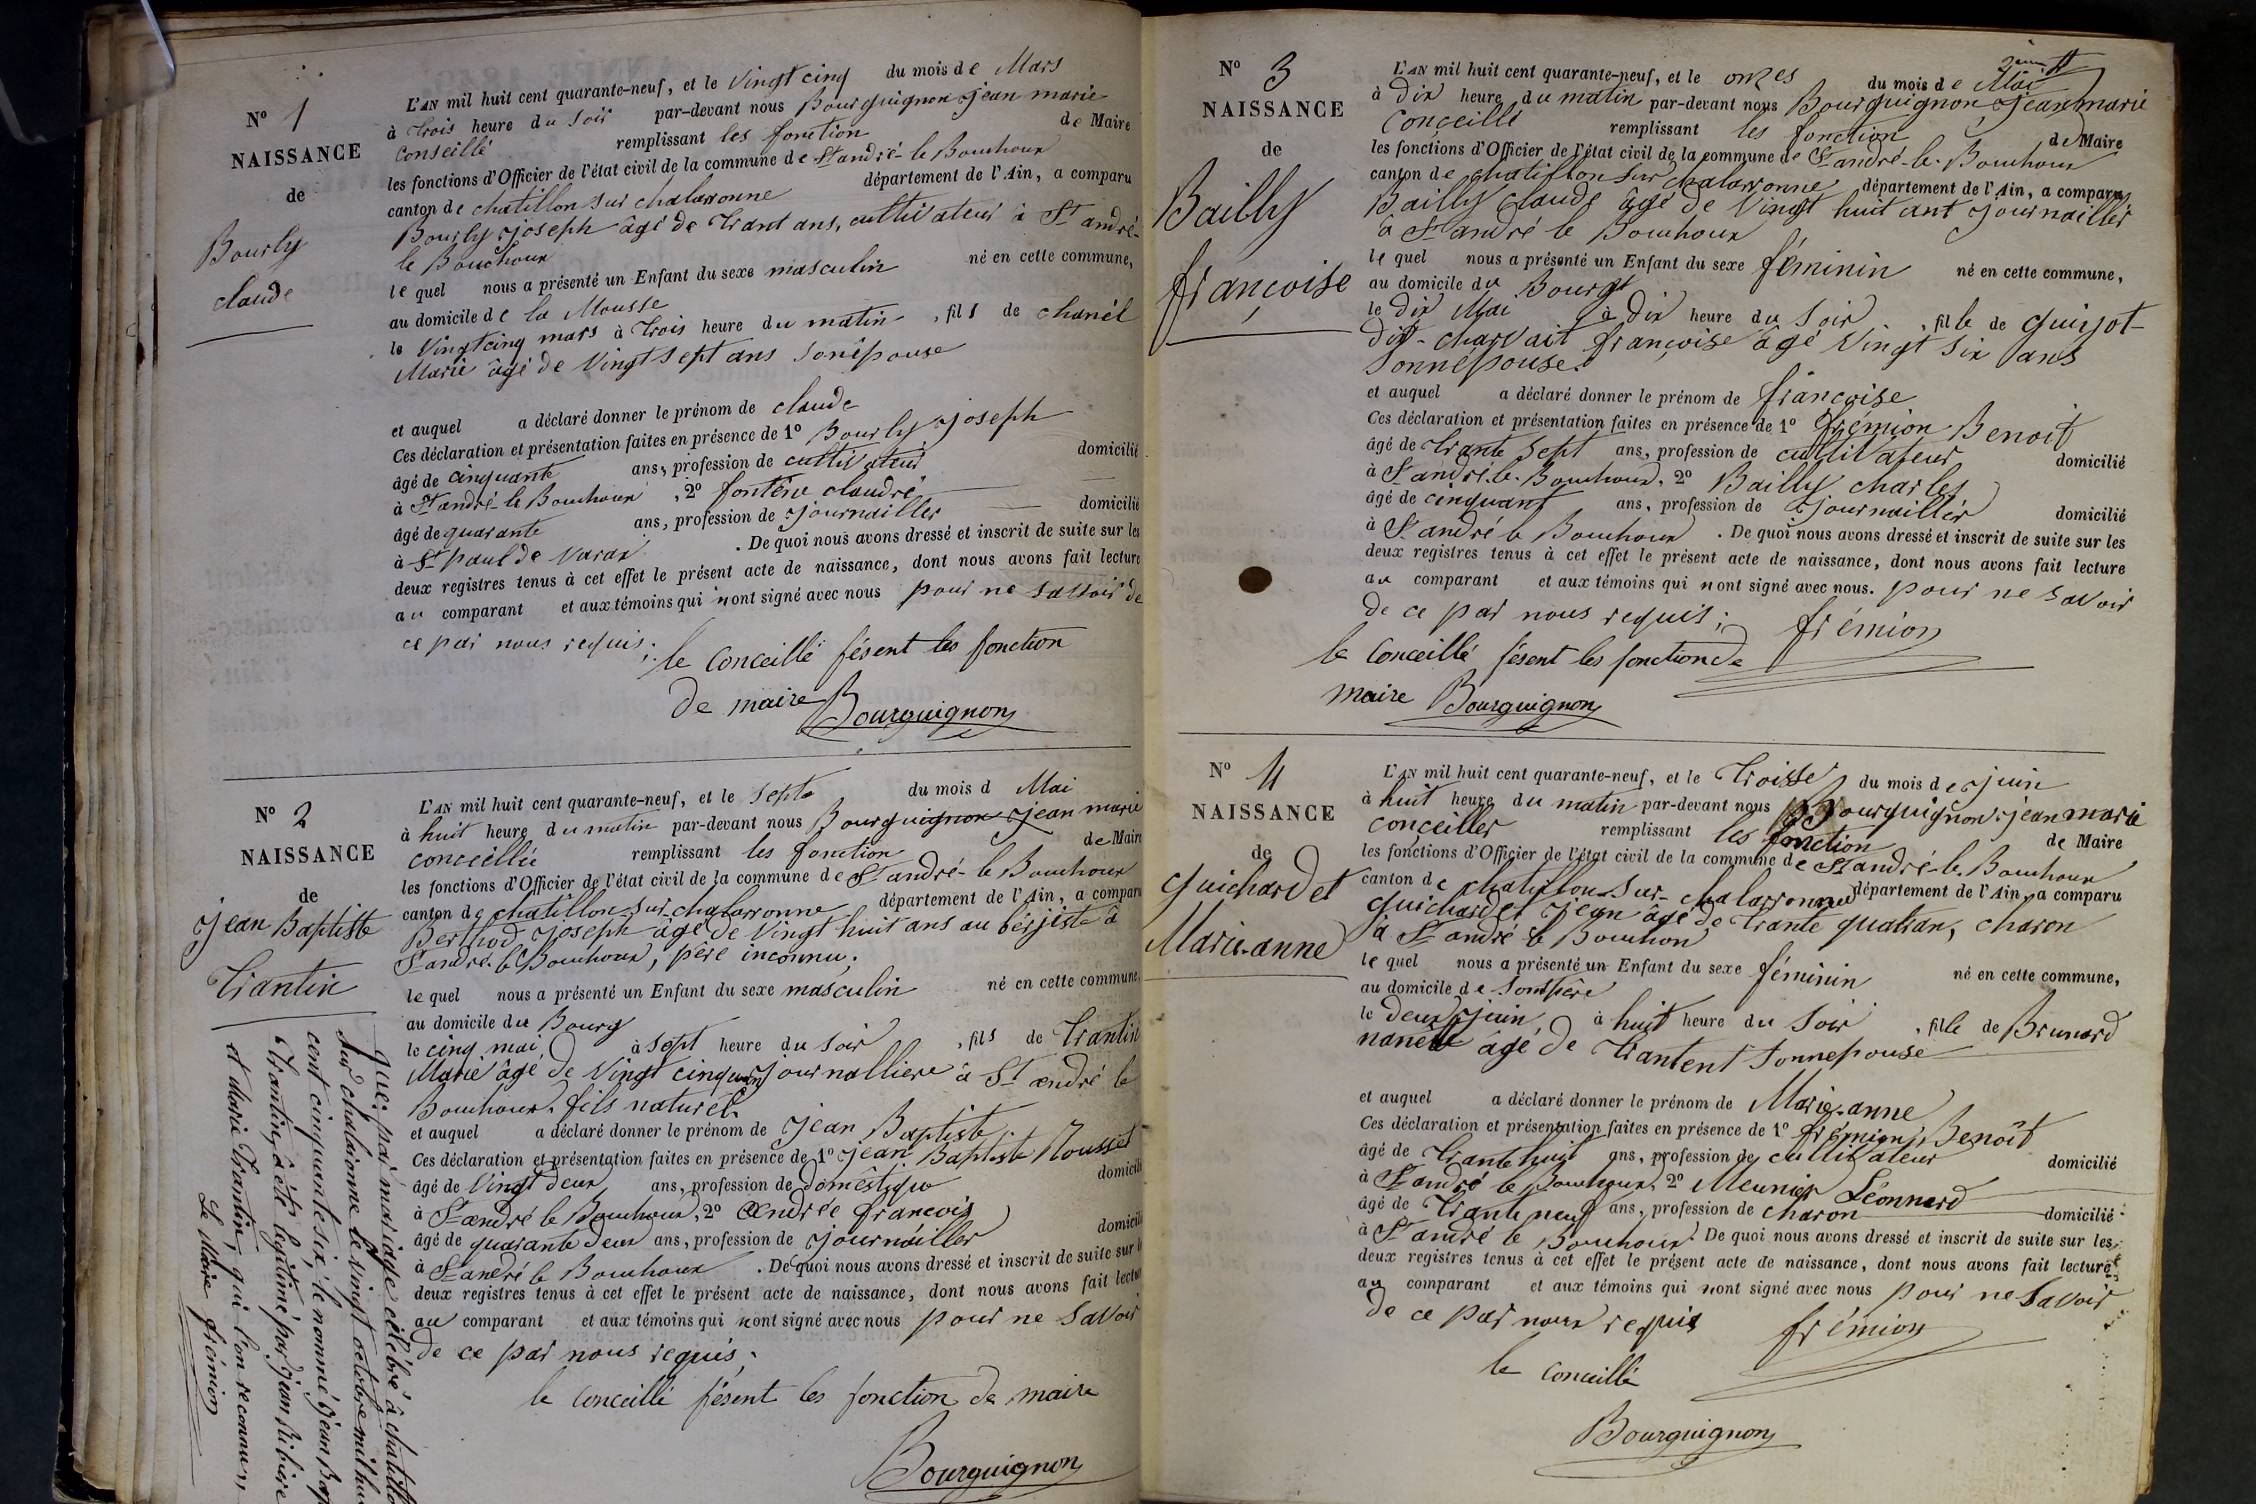 N° 1
NAISSANCE
de
Bourly
claude
L'AN mil huit cent quarante-neuf, et le Vingt cinq du mois de Mars
à trois heure du soir par-devant nous Bourguignon jean marie
Conseillé remplissant les fonction de Maire
les fonctions d'Officier de l'état civil de la commune de St andré-le Bouchoux
canton de chatillon sur chalaronne département de l'Ain, a comparu
Bourly joseph âgé de trant ans, cultivateur à St andré-
le Bouchoux
le quel nous a présenté un Enfant du sexe masculin né en cette commune,
au domicile de la Mousse
le Vingt cinq mars à trois heure du matin, fils de chanel
Marie âgé de Vingt sept ans sonépouse
et auquel a déclaré donner le prénom de claude
Ces déclaration et présentation faites en présence de 1° Bourly joseph
âgé de cinquante ans, profession de cultivateur domicilié
à St andré-le Bouchoux, 2° fonténe claudre
âgé de quarante ans, profession de journailler domicilié
à St paul de Varax. De quoi nous avons dressé et inscrit de suite sur les
deux registres tenus à cet effet le présent acte de naissance, dont nous avons fait lecture
au comparant et aux témoins qui nont signé avec nous pour ne savoir de
ce par nous requis;
le conceillé fésent les fonction
de maire Bourguignon
N° 2
NAISSANCE
de
jean Baptiste
trantin
L'AN mil huit cent quarante-neuf, et le septe du mois d Mai
à huit heure du matin par-devant nous Bourguignon jean marie
conceillié remplissant les fonction de Maire
les fonctions d'Officier de l'état civil de la commune de St andré-le Bouchoux
canton de chatillon sur chalaronne département de l'Ain, a comparu
Berthod joseph âgé de Vingt huit ans au bérjiste à
St andré-le Bouchoux, père inconnu,
le quel nous a présenté un Enfant du sexe masculin né en cette commune,
au domicile du Bourg
le cinq mai, à sept heure du soir, fils de trantin
Marie âgé de Vingt cinq an journalliere à St andré le
Bouchoux. fils naturel.
et auquel a déclaré donner le prénom de jean Baptiste
Ces déclaration et présentation faites en présence de 1° jean Baptiste Mousset
âgé de Vingt deux ans, profession de doméstique domicili
à St andré le Bouchoux, 2° andrée francois
âgé de quarante deux ans, profession de journailler domicili
à St andré le Bouchoux. De quoi nous avons dressé et inscrit de suite sur l
deux registres tenus à cet effet le présent acte de naissance, dont nous avons fait lectu
au comparant et aux témoins qui nont signé avec nous pour ne savoir
de ce par nous requis;
le conceillé fésent les fonction de maire
Bourguignon
que, par mariage célébré à chatillo
sur chalaronne le vingt octobre mil hui
cent cinquante six le nommé jean Bap
trantin, à été légitimé par jean
et Marie trantin, qui l'on reconnu,
Le Maire frémion
N° 3
NAISSANCE
de
Bailly
françoise
L'AN mil huit cent quarante-neuf, et le onzes du mois de Mai
à Dix heure du matin par-devant nous Bourguignon jean marie
conceillé remplissant les fonction de Maire
les fonctions d'Officier de l'état civil de la commune de St andré-le-Bouchoux
canton de chatillon sur chalaronne département de l'Ain, a comparu
Bailly claude âgé de Vingt huit ant journailler
à St andré le Bouchoux
le quel nous a présenté un Enfant du sexe féminin né en cette commune,
au domicile du Bourg
le dix Mai à Dix heure du Soir, fille de guijot
dit-charvait françoise âgé Vingt six ans
sonnépouse.
et auquel a déclaré donner le prénom de françoise
Ces déclaration et présentation faites en présence de 1° frémion Benoit
âgé de trante sept ans, profession de cultivateur domicilié
à St andré-le-Bouchoux, 2° Bailly charles
âgé de cinquant ans, profession de journaillér domicilié
à St andré le Bouchoux. De quoi nous avons dressé et inscrit de suite sur les
deux registres tenus à cet effet le présent acte de naissance, dont nous avons fait lecture
au comparant et aux témoins qui nont signé avec nous. pour ne savoir
de ce par nous requis; frémion
le conceillé fésent les fonction de
maire Bourguignon
N° 4
NAISSANCE
de
guichardet
Marie-anne
L'AN mil huit cent quarante-neuf, et le troisse du mois de juin
à huit heure du matin par-devant nous Bourguignon jean marie
conceiller remplissant les fonction de Maire
les fonctions d'Officier de l'état civil de la commune de St andré-le-Bouchoux
canton de chatillon sur-chalaronne département de l'Ain, a comparu
guichardet jean âgé de trante quatran, charon
à St andré le Bouchon
le quel nous a présenté un Enfant du sexe féminin né en cette commune,
au domicile de sonspère
le deux juin à huit heure du soir, fille de Brunard
nanette âgé de trantent sonnepouse
et auquel a déclaré donner le prénom de Marie-anne
Ces déclaration et présentation faites en présence de 1° frémion, Benoît
âgé de trante huit ans, profession de cultivateur domicilié
à St andré le Bouchoux, 2° Meunier Léonnard
âgé de trante neuf ans, profession de charon domicilié
à St andré le Bouchoux. De quoi nous avons dressé et inscrit de suite sur les
deux registres tenus à cet effet le présent acte de naissance, dont nous avons fait lecture
au comparant et aux témoins qui nont signé avec nous pour ne savoir
de ce par nous requis frémion
le conceillé
Bourguignon